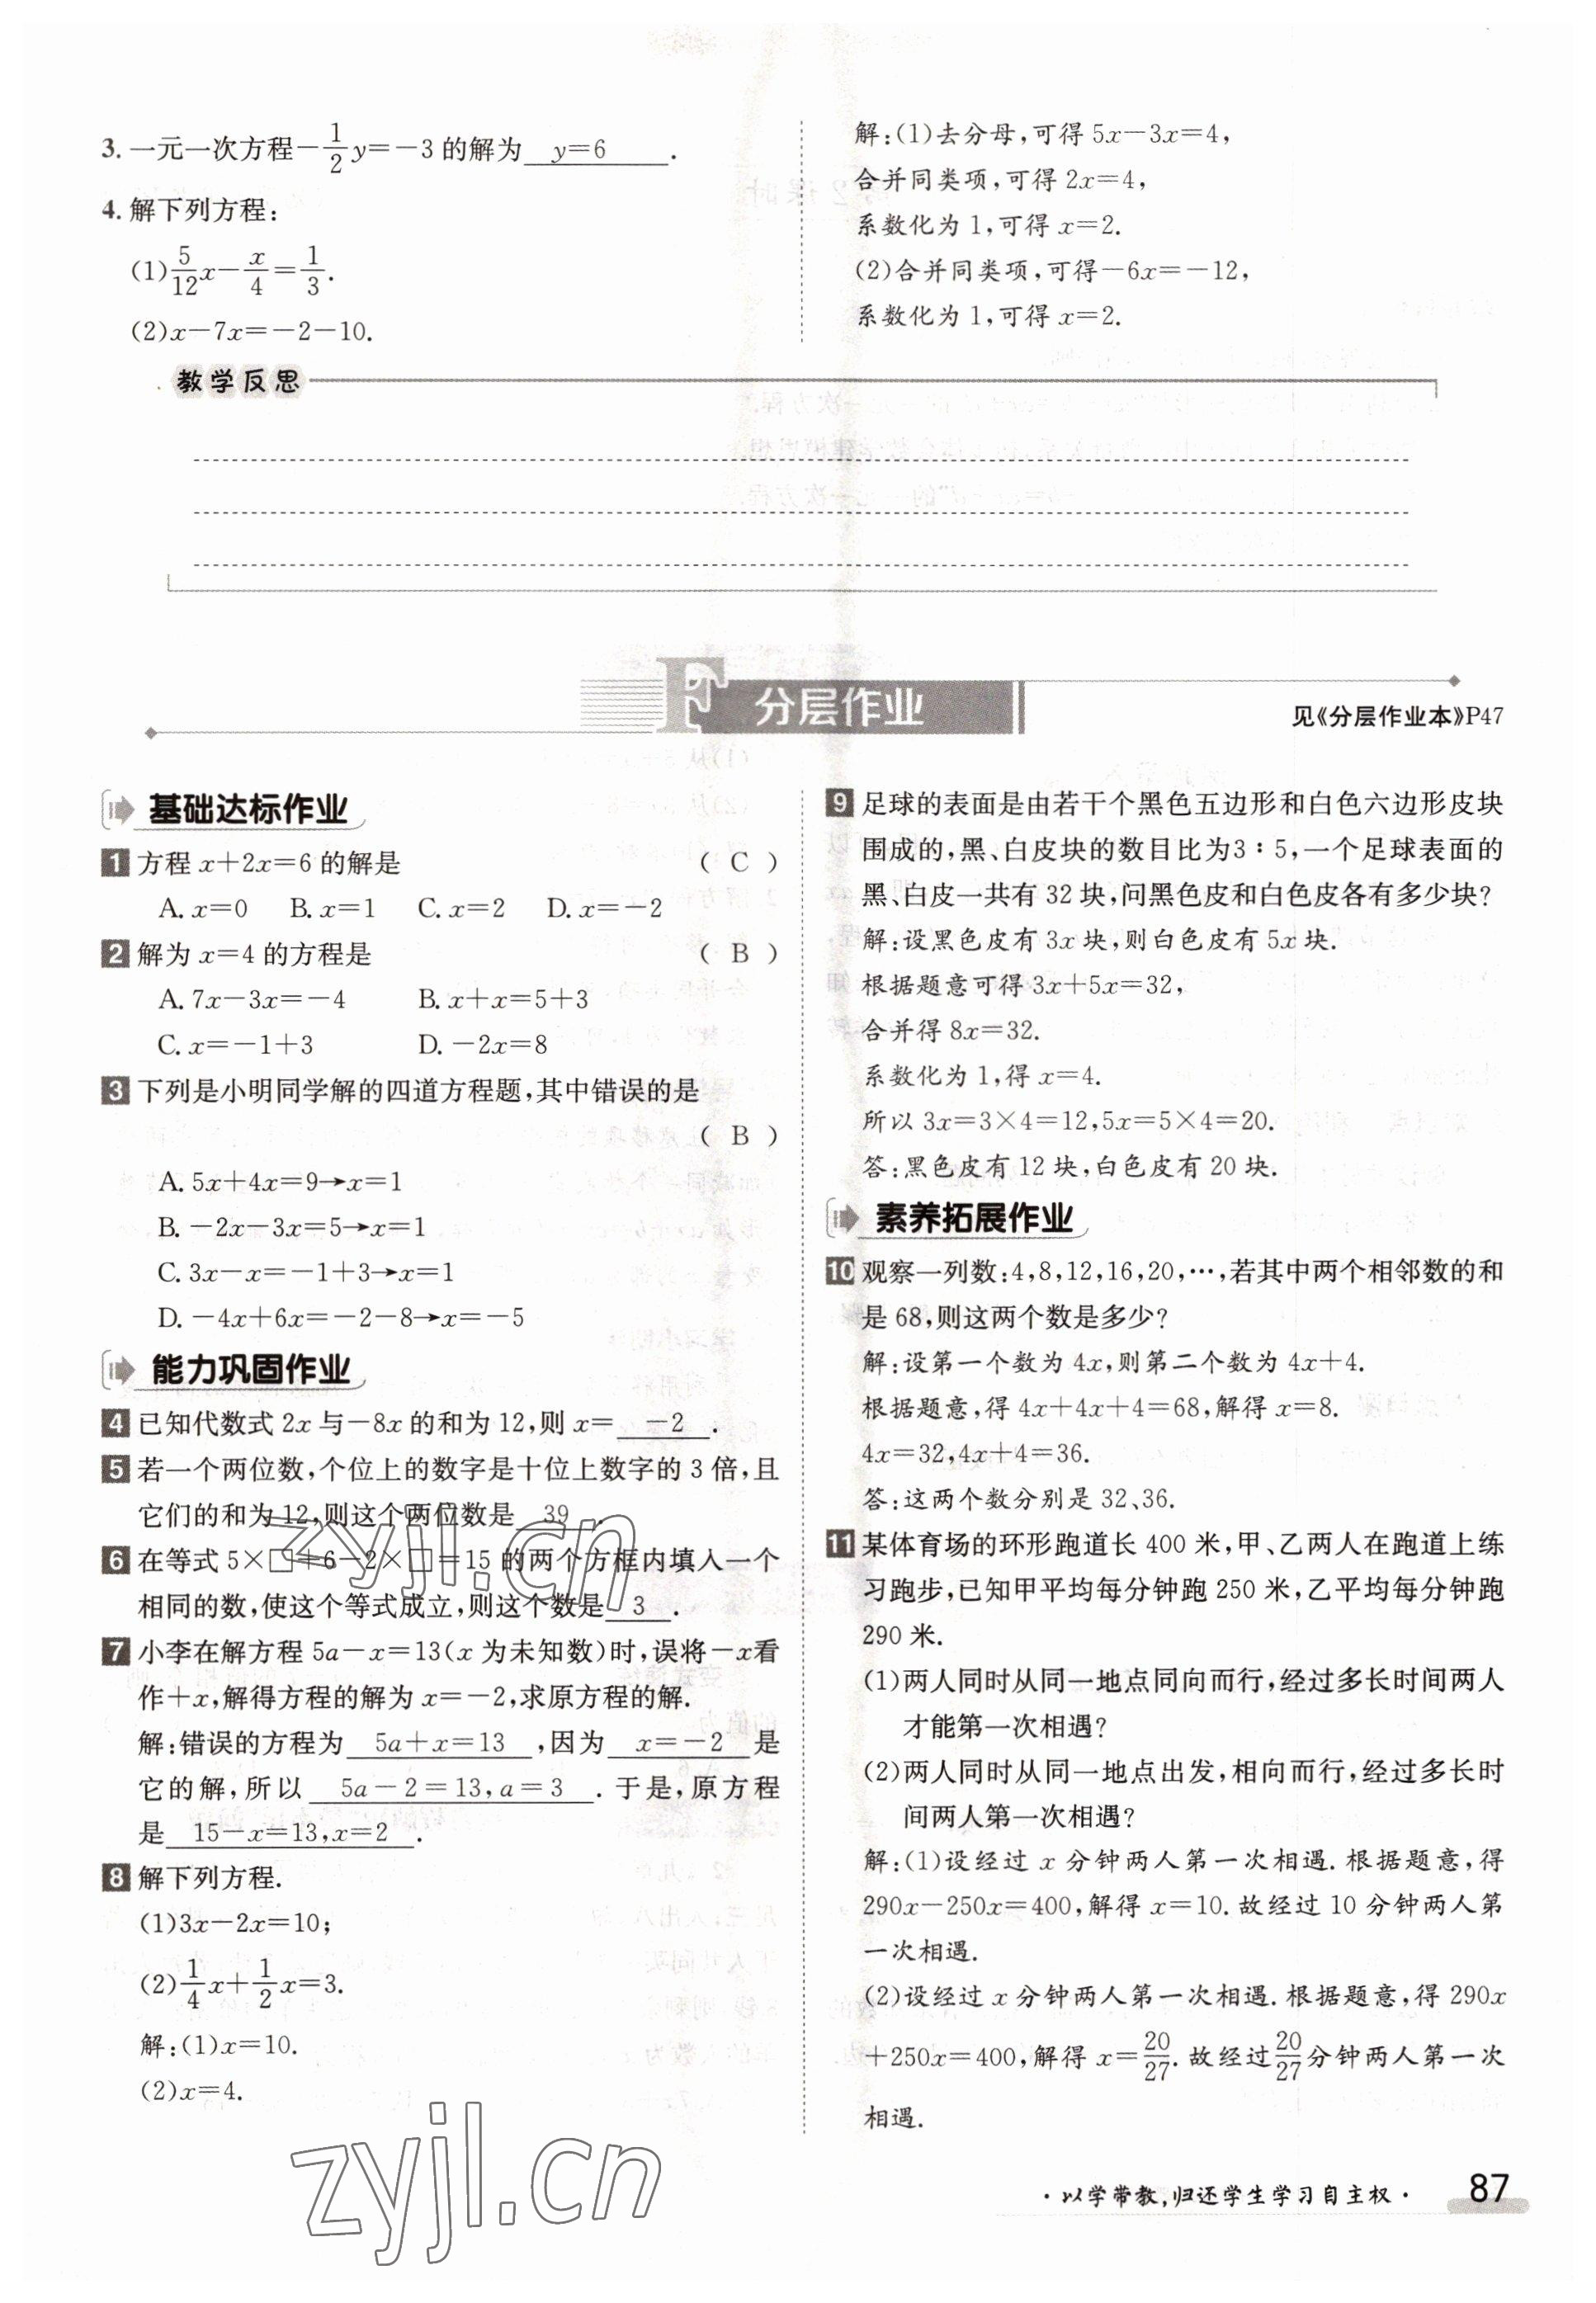 3. 一元一次方程-\frac{1}{2}y=-3的解为 y=6 .
4. 解下列方程:
(1)\frac{5}{12}x-\frac{x}{4}=\frac{1}{3}.
(2)x-7x=-2-10.
解:(1)去分母,可得5x-3x=4,
合并同类项,可得2x=4,
系数化为1,可得x=2.
(2)合并同类项,可得-6x=-12,
系数化为1,可得x=2.
教学反思
F 分层作业
见《分层作业本》P47
基础达标作业
1 方程x+2x=6的解是 ( C )
A. x=0 B. x=1 C. x=2 D. x=-2
2 解为x=4的方程是 ( B )
A. 7x-3x=-4 B. x+x=5+3
C. x=-1+3 D. -2x=8
3 下列是小明同学解的四道方程题,其中错误的是
( B )
A. 5x+4x=9→x=1
B. -2x-3x=5→x=1
C. 3x-x=-1+3→x=1
D. -4x+6x=-2-8→x=-5
能力巩固作业
4 已知代数式2x与-8x的和为12,则x= -2 .
5 若一个两位数,个位上的数字是十位上数字的3倍,且
它们的和为12,则这个两位数是 39 .
6 在等式5×□+6-2×□=15的两个方框内填入一个
相同的数,使这个等式成立,则这个数是 3 .
7 小李在解方程5a-x=13(x为未知数)时,误将-x看
作+x,解得方程的解为x=-2,求原方程的解.
解:错误的方程为 5a+x=13 ,因为 x=-2 是
它的解,所以 5a-2=13,a=3 .于是,原方程
是 15-x=13,x=2 .
8 解下列方程.
(1)3x-2x=10;
(2)\frac{1}{4}x+\frac{1}{2}x=3.
解:(1)x=10.
(2)x=4.
9 足球的表面是由若干个黑色五边形和白色六边形皮块
围成的,黑、白皮块的数目比为3:5,一个足球表面的
黑、白皮一共有32块,问黑色皮和白色皮各有多少块?
解:设黑色皮有3x块,则白色皮有5x块.
根据题意可得3x+5x=32,
合并得8x=32.
系数化为1,得x=4.
所以3x=3×4=12,5x=5×4=20.
答:黑色皮有12块,白色皮有20块.
素养拓展作业
10 观察一列数:4,8,12,16,20,…,若其中两个相邻数的和
是68,则这两个数是多少?
解:设第一个数为4x,则第二个数为4x+4.
根据题意,得4x+4x+4=68,解得x=8.
4x=32,4x+4=36.
答:这两个数分别是32、36.
11 某体育场的环形跑道长400米,甲、乙两人在跑道上练
习跑步,已知甲平均每分钟跑250米,乙平均每分钟跑
290米.
(1)两人同时从同一地点同向而行,经过多长时间两人
才能第一次相遇?
(2)两人同时从同一地点出发,相向而行,经过多长时
间两人第一次相遇?
解:(1)设经过x分钟两人第一次相遇.根据题意,得
290x-250x=400,解得x=10.故经过10分钟两人第
一次相遇.
(2)设经过x分钟两人第一次相遇.根据题意,得290x
+250x=400,解得x=\frac{20}{27}.故经过\frac{20}{27}分钟两人第一次
相遇.
zyjl.cn
zyjl.cn
·以学带教,归还学生学习自主权·
87